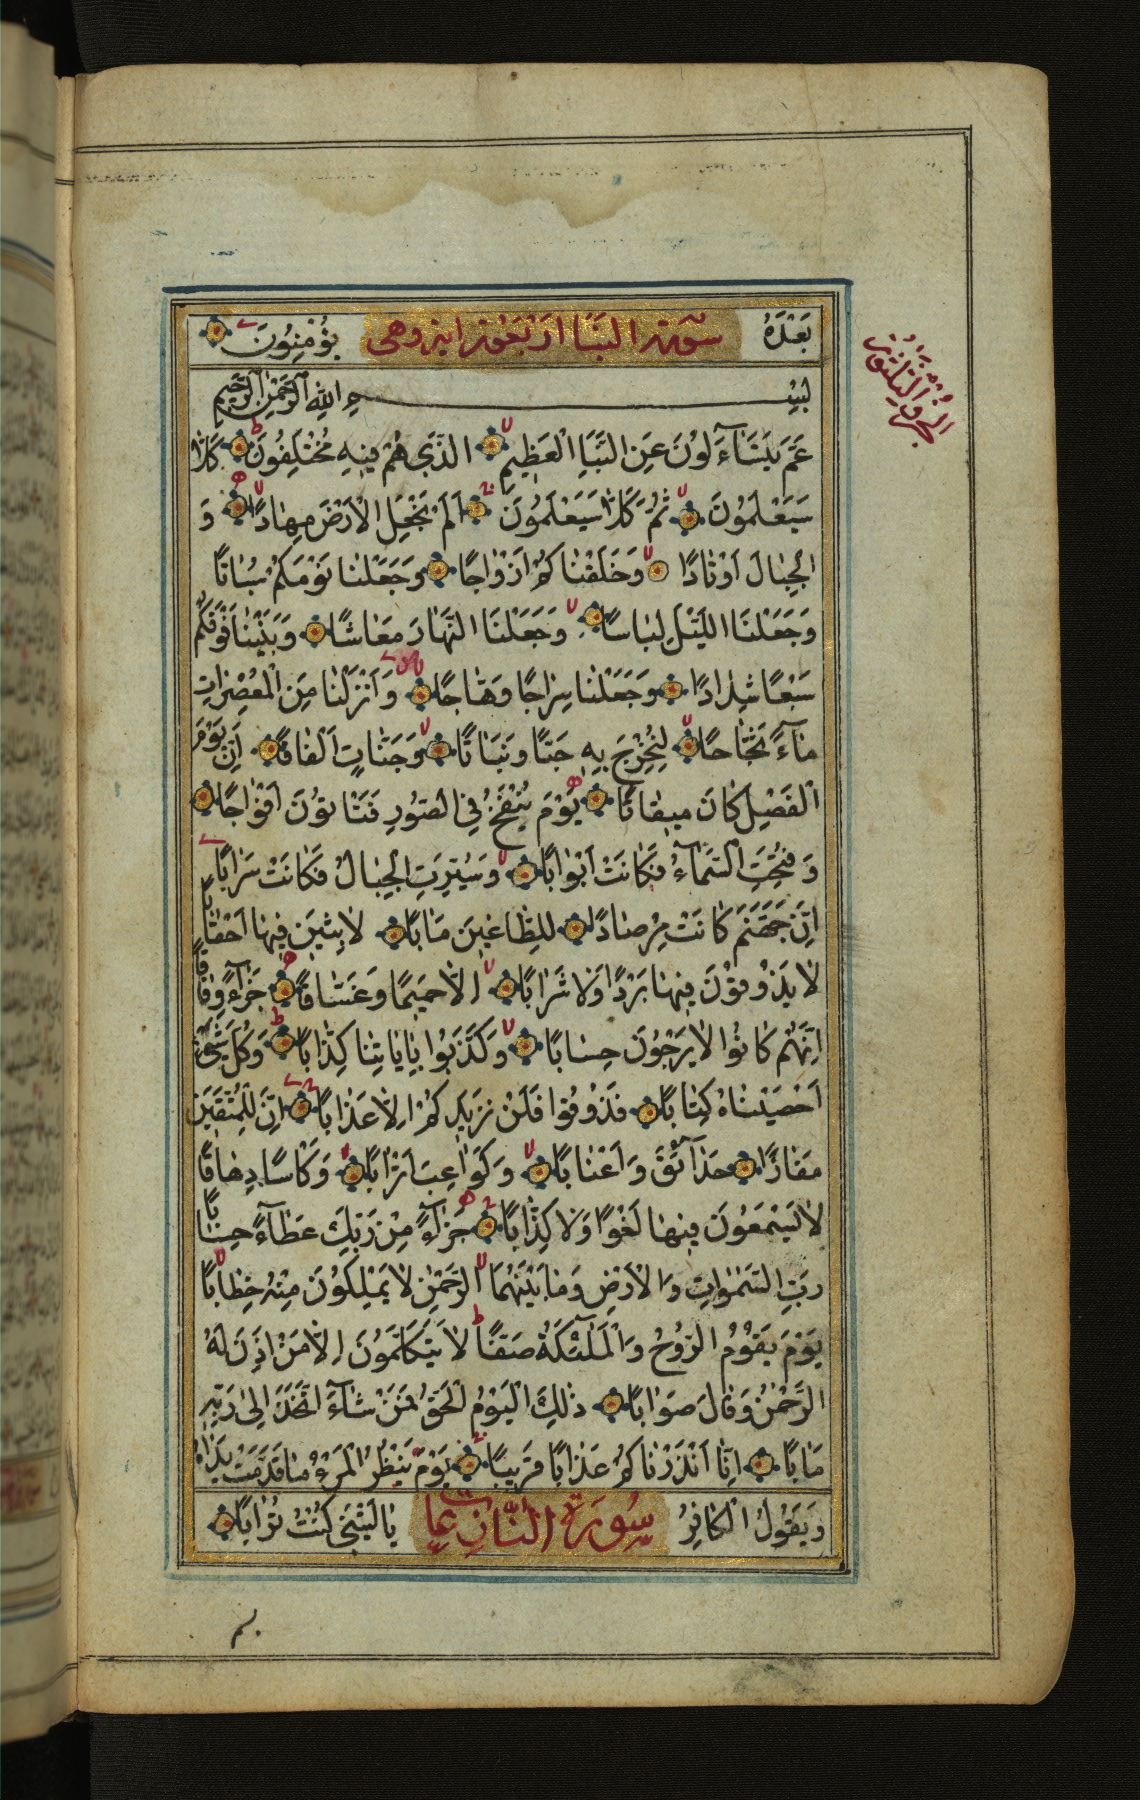 بَعْدَهُ سورة النبأ اربعون اية وهى يُؤْمِنُونَ
الجزو الثلثون
بِسْمِ اللهِ الرَّحْمٰنِ الرَّحِيمِ
عَمَّ يَتَسَآءَلُونَ عَنِ النَّبَاِ الْعَظِيمِ الَّذِي هُمْ فِيهِ مُخْتَلِفُونَ كَلَّا
سَيَعْلَمُونَ ثُمَّ كَلَّا سَيَعْلَمُونَ اَلَمْ نَجْعَلِ الْاَرْضَ مِهَادًا وَ
الْجِبَالَ اَوْتَادًا وَخَلَقْنَاكُمْ اَزْوَاجًا وَجَعَلْنَا نَوْمَكُمْ سُبَاتًا
وَجَعَلْنَا اللَّيْلَ لِبَاسًا وَجَعَلْنَا النَّهَارَ مَعَاشًا وَبَنَيْنَا فَوْقَكُمْ
سَبْعًا شِدَادًا وَجَعَلْنَا سِرَاجًا وَهَّاجًا وَاَنْزَلْنَا مِنَ الْمُعْصِرَاتِ
مَآءً ثَجَّاجًا لِنُخْرِجَ بِهِ حَبًّا وَنَبَاتًا وَجَنَّاتٍ اَلْفَافًا اِنَّ يَوْمَ
الْفَصْلِ كَانَ مِيقَاتًا يَوْمَ يُنْفَخُ فِي الصُّورِ فَتَأْتُونَ اَفْوَاجًا
وَفُتِحَتِ السَّمَآءُ فَكَانَتْ اَبْوَابًا وَسُيِّرَتِ الْجِبَالُ فَكَانَتْ سَرَابًا
اِنَّ جَهَنَّمَ كَانَتْ مِرْصَادًا لِلطَّاغِينَ مَاٰبًا لَابِثِينَ فِيهَا اَحْقَابًا
لَا يَذُوقُونَ فِيهَا بَرْدًا وَلَا شَرَابًا اِلَّا حَمِيمًا وَغَسَّاقًا جَزَآءً وِفَاقًا
اِنَّهُمْ كَانُوا لَا يَرْجُونَ حِسَابًا وَكَذَّبُوا بِاٰيَاتِنَا كِذَّابًا وَكُلَّ شَيْءٍ
اَحْصَيْنَاهُ كِتَابًا فَذُوقُوا فَلَنْ نَزِيدَكُمْ اِلَّا عَذَابًا اِنَّ لِلْمُتَّقِينَ
مَفَازًا حَدَآئِقَ وَاَعْنَابًا وَكَوَاعِبَ اَتْرَابًا وَكَأْسًا دِهَاقًا
لَا يَسْمَعُونَ فِيهَا لَغْوًا وَلَا كِذَّابًا جَزَآءً مِنْ رَبِّكَ عَطَآءً حِسَابًا
رَبِّ السَّمٰوَاتِ وَالْاَرْضِ وَمَا بَيْنَهُمَا الرَّحْمٰنِ لَا يَمْلِكُونَ مِنْهُ خِطَابًا
يَوْمَ يَقُومُ الرُّوحُ وَالْمَلٰٓئِكَةُ صَفًّا لَا يَتَكَلَّمُونَ اِلَّا مَنْ اَذِنَ لَهُ
الرَّحْمٰنُ وَقَالَ صَوَابًا ذٰلِكَ الْيَوْمُ الْحَقُّ فَمَنْ شَآءَ اتَّخَذَ اِلٰى رَبِّهِ
مَاٰبًا اِنَّا اَنْذَرْنَاكُمْ عَذَابًا قَرِيبًا يَوْمَ يَنْظُرُ الْمَرْءُ مَا قَدَّمَتْ يَدَاهُ
وَيَقُولُ الْكَافِرُ سُورَة يَا لَيْتَنِي كُنْتُ تُرَابًا